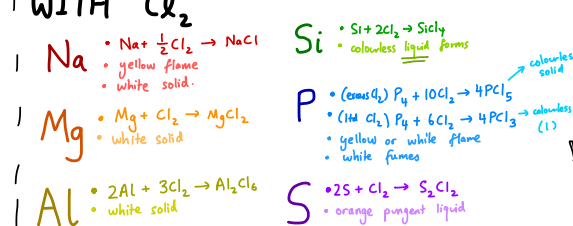 WITH Cl₂
Na
• Na + ½Cl₂ → NaCl
• yellow flame
• white solid.
Mg
• Mg + Cl₂ → MgCl₂
• white solid
Al
• 2Al + 3Cl₂ → Al₂Cl₆
• white solid
Si
• Si + 2Cl₂ → SiCl₄
• colourless liquid forms
P
• (excess Cl₂) P₄ + 10Cl₂ → 4PCl₅ → colourless solid
• (ltd Cl₂) P₄ + 6Cl₂ → 4PCl₃ → colourless (l)
• yellow or white flame
• white fumes
S
• 2S + Cl₂ → S₂Cl₂
• orange pungent liquid